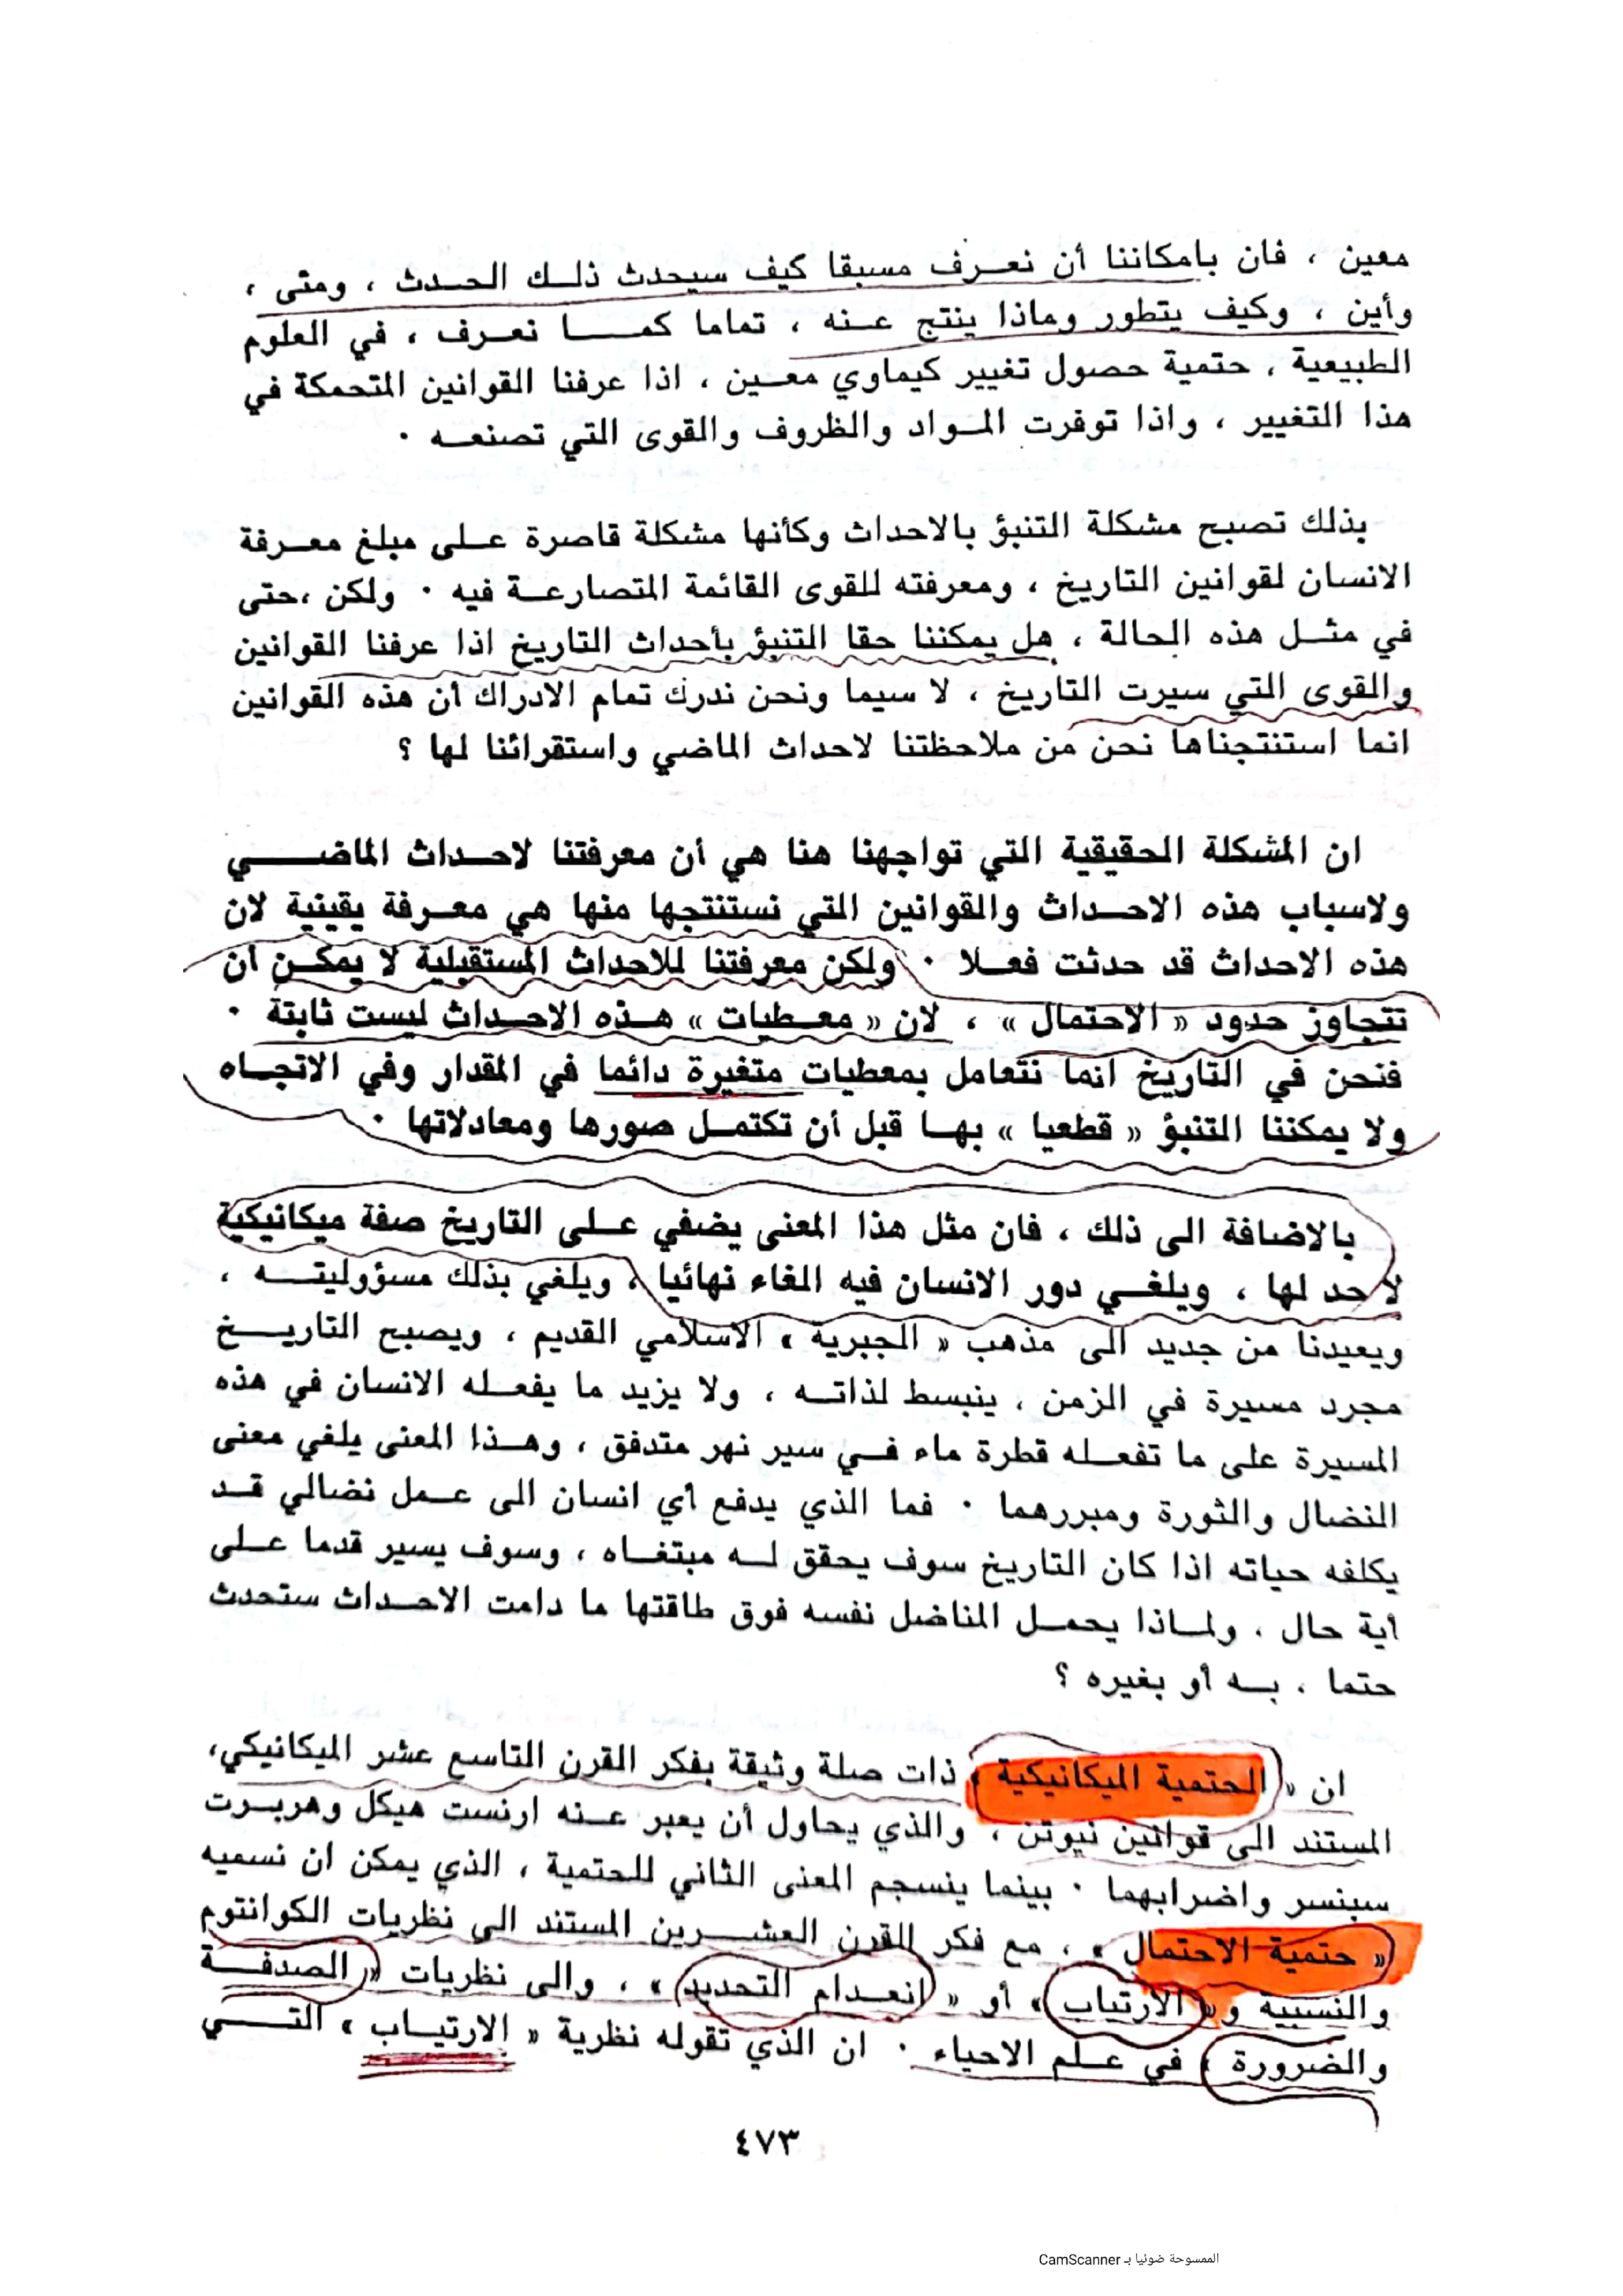 معين ، فان بامكاننا أن نعـرف مسبقا كيف سيحدث ذلـك الحـدث ، ومتى ،
وأين ، وكيف يتطور وماذا ينتج عـنه ، تماما كمــا نعـرف ، في العلوم
الطبيعية ، حتمية حصول تغيير كيماوي معـين ، اذا عرفنا القوانين المتحمكة في
هذا التغيير ، واذا توفرت المـواد والظروف والقوى التي تصنعـه ٠
بذلك تصبح مشكلة التنبؤ بالاحداث وكأنها مشكلة قاصرة عـلى مبلغ معـرفة
الانسان لقوانين التاريخ ، ومعرفته للقوى القائمة المتصارعـة فيه ٠ ولكن ،حتى
في مثـل هذه الحالة ، هل يمكننا حقا التنبؤ بأحداث التاريخ اذا عرفنا القوانين
والقوى التي سيرت التاريخ ، لا سيما ونحن ندرك تمام الادراك أن هذه القوانين
انما استنتجناها نحن من ملاحظتنا لاحداث الماضي واستقرائنا لها ؟
ان المشكلة الحقيقية التي تواجهنا هنا هي أن معرفتنا لاحـداث الماضــي
ولاسباب هذه الاحـداث والقوانين التي نستنتجها منها هي معـرفة يقينية لان
هذه الاحداث قد حدثت فعـلا ٠ ولكن معرفتنا للاحداث المستقبلية لا يمكـن أن
تتجاوز حدود « الاحتمال » ، لان « معـطيات » هـذه الاحـداث ليست ثابتة ٠
فنحن في التاريخ انما نتعامل بمعطيات متغيرة دائما في المقدار وفي الاتجـاه
ولا يمكننا التنبؤ « قطعيا » بهـا قبل أن تكتمـل صورها ومعادلاتها ٠
بالاضافة الى ذلك ، فان مثل هذا المعنى يضفي عـلى التاريخ صفة ميكانيكية
لا حد لها ، ويلغـي دور الانسان فيه الغاء نهائيا ، ويلغي بذلك مسؤوليتـه ،
ويعيدنا من جديد الى مذهب « الجبرية » الاسلامي القديم ، ويصبح التاريـخ
مجرد مسيرة في الزمن ، ينبسط لذاتـه ، ولا يزيد ما يفعـله الانسان في هذه
المسيرة على ما تفعـله قطرة ماء فـي سير نهر متدفق ، وهـذا المعنى يلغي معنى
النضال والثورة ومبررهما ٠ فما الذي يدفع أي انسان الى عـمل نضالي قـد
يكلفه حياته اذا كان التاريخ سوف يحقق لـه مبتغـاه ، وسوف يسير قدما عـلى
أية حال ، ولمـاذا يحمـل المناضل نفسه فوق طاقتها ما دامت الاحـداث ستحدث
حتما ، بـه أو بغيره ؟
ان « الحتمية الميكانيكية » ذات صلة وثيقة بفكر القرن التاسع عشر الميكانيكي،
المستند الى قوانين نيوتن ، والذي يحاول أن يعبر عـنه ارنست هيكل وهربـرت
سبنسر واضرابهما ٠ بينما ينسجم المعنى الثاني للحتمية ، الذي يمكن ان نسميه
« حتمية الاحتمال » ، مع فكر القرن العشـرين المستند الى نظريات الكوانتوم
والنسبية و « الارتياب » أو « انعـدام التحديد » ، والى نظريات « الصدفـة
والضرورة » في عـلم الاحياء ٠ ان الذي تقوله نظرية « الارتيـاب » التـي
٤٧٣
الممسوحة ضوئيا بـ CamScanner